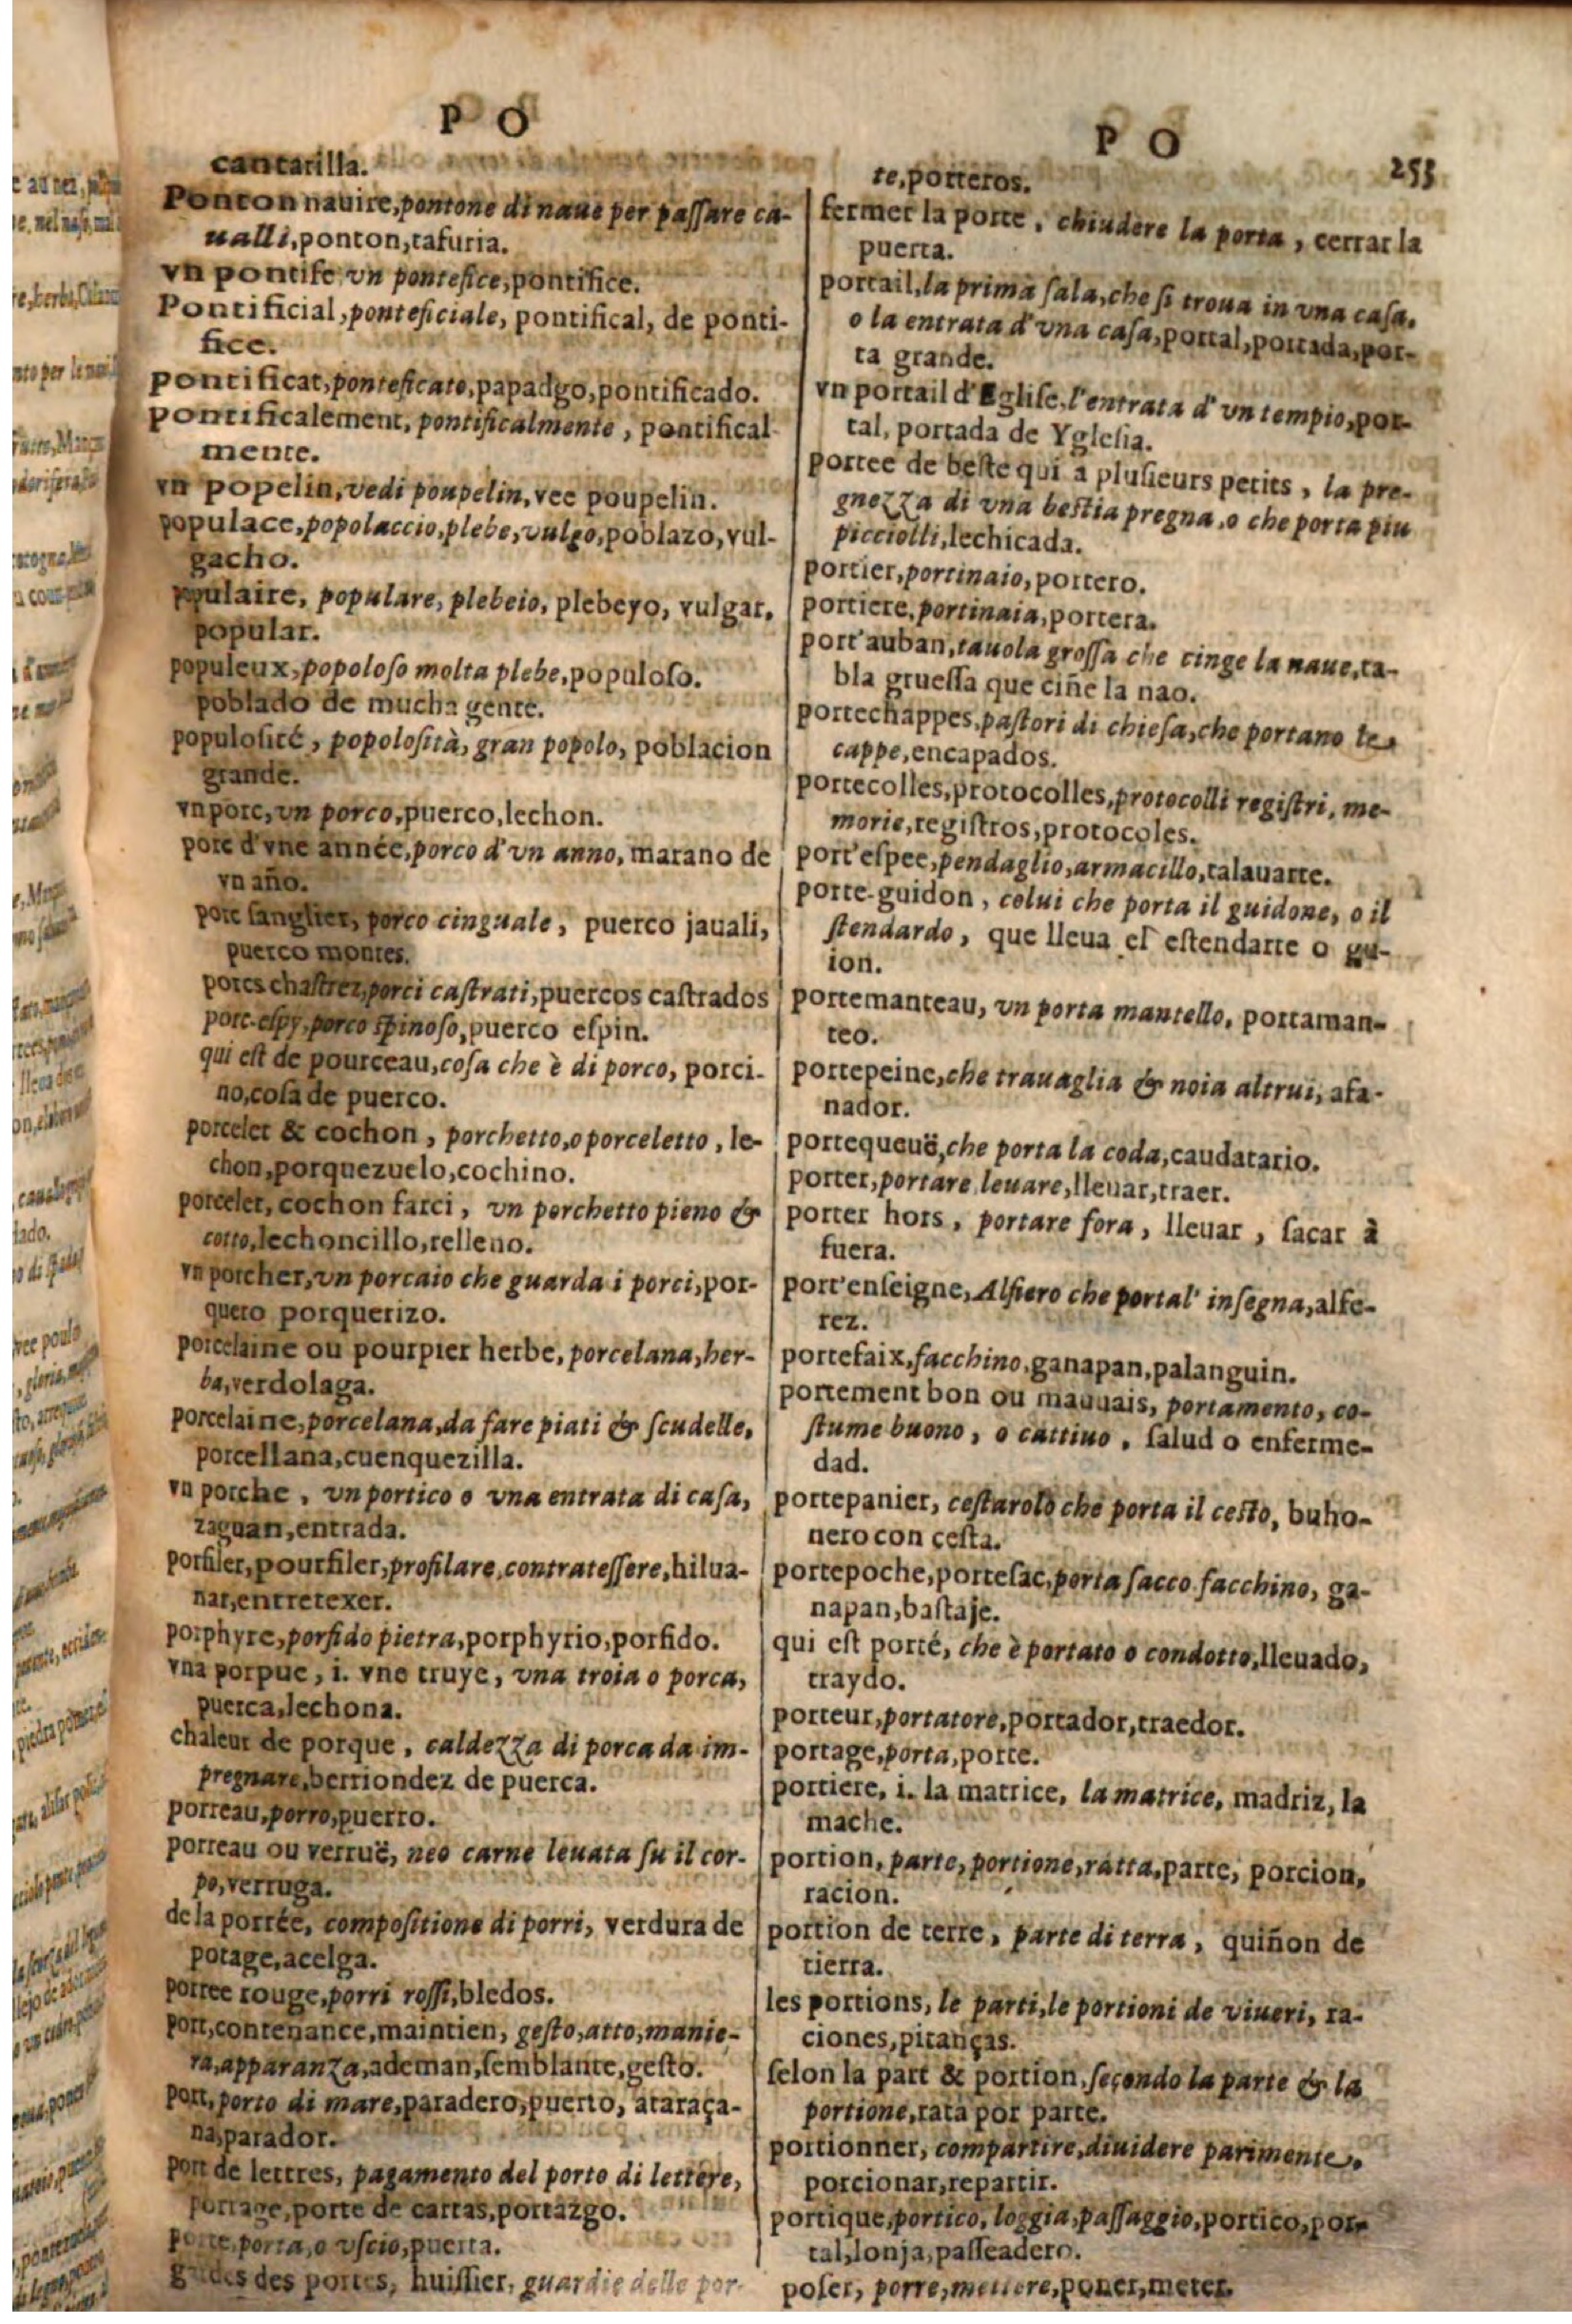 P O
cantarilla.
Ponton nauire, pontone di naue per paſſare ca-
ualli, ponton, tafuria.
vn pontife vn pontefice, pontifice.
Pontificial, ponteficiale, pontifical, de ponti-
fice.
pontificat, ponteficato, papadgo, pontificado.
pontificalement, pontificalmente, pontifical
mente.
vn popelin, vedi poupelin, vee poupelin.
populace, popolaccio, plebe, vulgo, poblazo, vul-
gacho.
populaire, populare, plebeio, plebeyo, vulgar,
popular.
populeux, popoloſo molta plebe, populoſo.
poblado de mucha gente.
populoſité, popoloſità, gran popolo, poblacion
grande.
vn porc, vn porco, puerco, lechon.
porc d'vne année, porco d'vn anno, marano de
vn año.
porc ſanglier, porco cinguale, puerco jauali,
puerco montes.
porcs chaſtrez, porci caſtrati, puercos caſtrados
porc-eſpy, porco ſpinoſo, puerco eſpin.
qui eſt de pourceau, coſa che è di porco, porci-
no, coſa de puerco.
porcelet & cochon, porchetto, o porceletto, le-
chon, porquezuelo, cochino.
porcelet, cochon farci, vn porchetto pieno &
cotto, lechoncillo, relleno.
vn porcher, vn porcaio che guarda i porci, por-
quero porquerizo.
porcelaine ou pourpier herbe, porcelana, her-
ba, verdolaga.
porcelaine, porcelana, da fare piati & ſcudelle,
porcellana, cuenquezilla.
vn porche, vn portico o vna entrata di caſa,
zaguan, entrada.
porfiler, pourfiler, profilare, contrateſſere, hilua-
nar, entretexer.
porphyre, porfido pietra, porphyrio, porfido.
vna porpue, i. vne truye, vna troia o porca,
puerca, lechona.
chaleur de porque, caldezza di porca da im-
pregnare, berriondez de puerca.
porreau, porro, puerro.
porreau ou verruë, neo carne leuata ſu il cor-
po, verruga.
de la porrée, compoſitione di porri, verdura de
potage, acelga.
porree rouge, porri roſſi, bledos.
port, contenance, maintien, geſto, atto, manie-
ra, apparanza, ademan, ſemblante, geſto.
port, porto di mare, paradero, puerto, ataraça-
na, parador.
port de lettres, pagamento del porto di lettere,
portage, porte de cartas, portazgo.
porte, porta, o vſcio, puerta.
gardes des portes, huiſſier, guardie delle por-
P O
253
te, porteros.
fermer la porte, chiudere la porta, cerrar la
puerta.
portail, la prima ſala, che ſi troua in vna caſa,
o la entrata d'vna caſa, portal, portada, por-
ta grande.
vn portail d'Egliſe, l'entrata d'vn tempio, por-
tal, portada de Ygleſia.
portee de beſte qui a pluſieurs petits, la pre-
gnezza di vna beſtia pregna, o che porta piu
picciolli, lechicada.
portier, portinaio, portero.
portiere, portinaia, portera.
port'auban, tauola groſſa che cinge la naue, ta-
bla grueſſa que ciñe la nao.
portechappes, paſtori di chieſa, che portano le
cappe, encapados.
portecolles, protocolles, protocolli regiſtri, me-
morie, regiſtros, protocoles.
port'eſpee, pendaglio, armacillo, talauarte.
porte-guidon, colui che porta il guidone, o il
ſtendardo, que lleua el eſtendarte o gu-
ion.
portemanteau, vn porta mantello, portaman-
teo.
portepeine, che trauaglia & noia altrui, afa-
nador.
portequeuë, che porta la coda, caudatario.
porter, portare leuare, lleuar, traer.
porter hors, portare fora, lleuar, ſacar à
fuera.
port'enſeigne, Alfiero che portal' inſegna, alfe-
rez.
portefaix, facchino, ganapan, palanguin.
portement bon ou mauuais, portamento, co-
ſtume buono, o cattiuo, ſalud o enferme-
dad.
portepanier, ceſtarolo che porta il ceſto, buho-
nero con ceſta.
portepoche, porteſac, porta ſacco facchino, ga-
napan, baſtaje.
qui eſt porté, che è portato o condotto, lleuado,
traydo.
porteur, portatore, portador, traedor.
portage, porta, porte.
portiere, i. la matrice, la matrice, madriz, la
mache.
portion, parte, portione, ratta, parte, porcion,
racion.
portion de terre, parte di terra, quiñon de
tierra.
les portions, le parti, le portioni de viueri, ra-
ciones, pitanças.
ſelon la part & portion, ſecondo la parte & la
portione, rata por parte.
portionner, compartire, diuidere parimente,
porcionar, repartir.
portique, portico, loggia, paſſaggio, portico, por-
tal, lonja, paſſeadero.
poſer, porre, mettere, poner, meter.